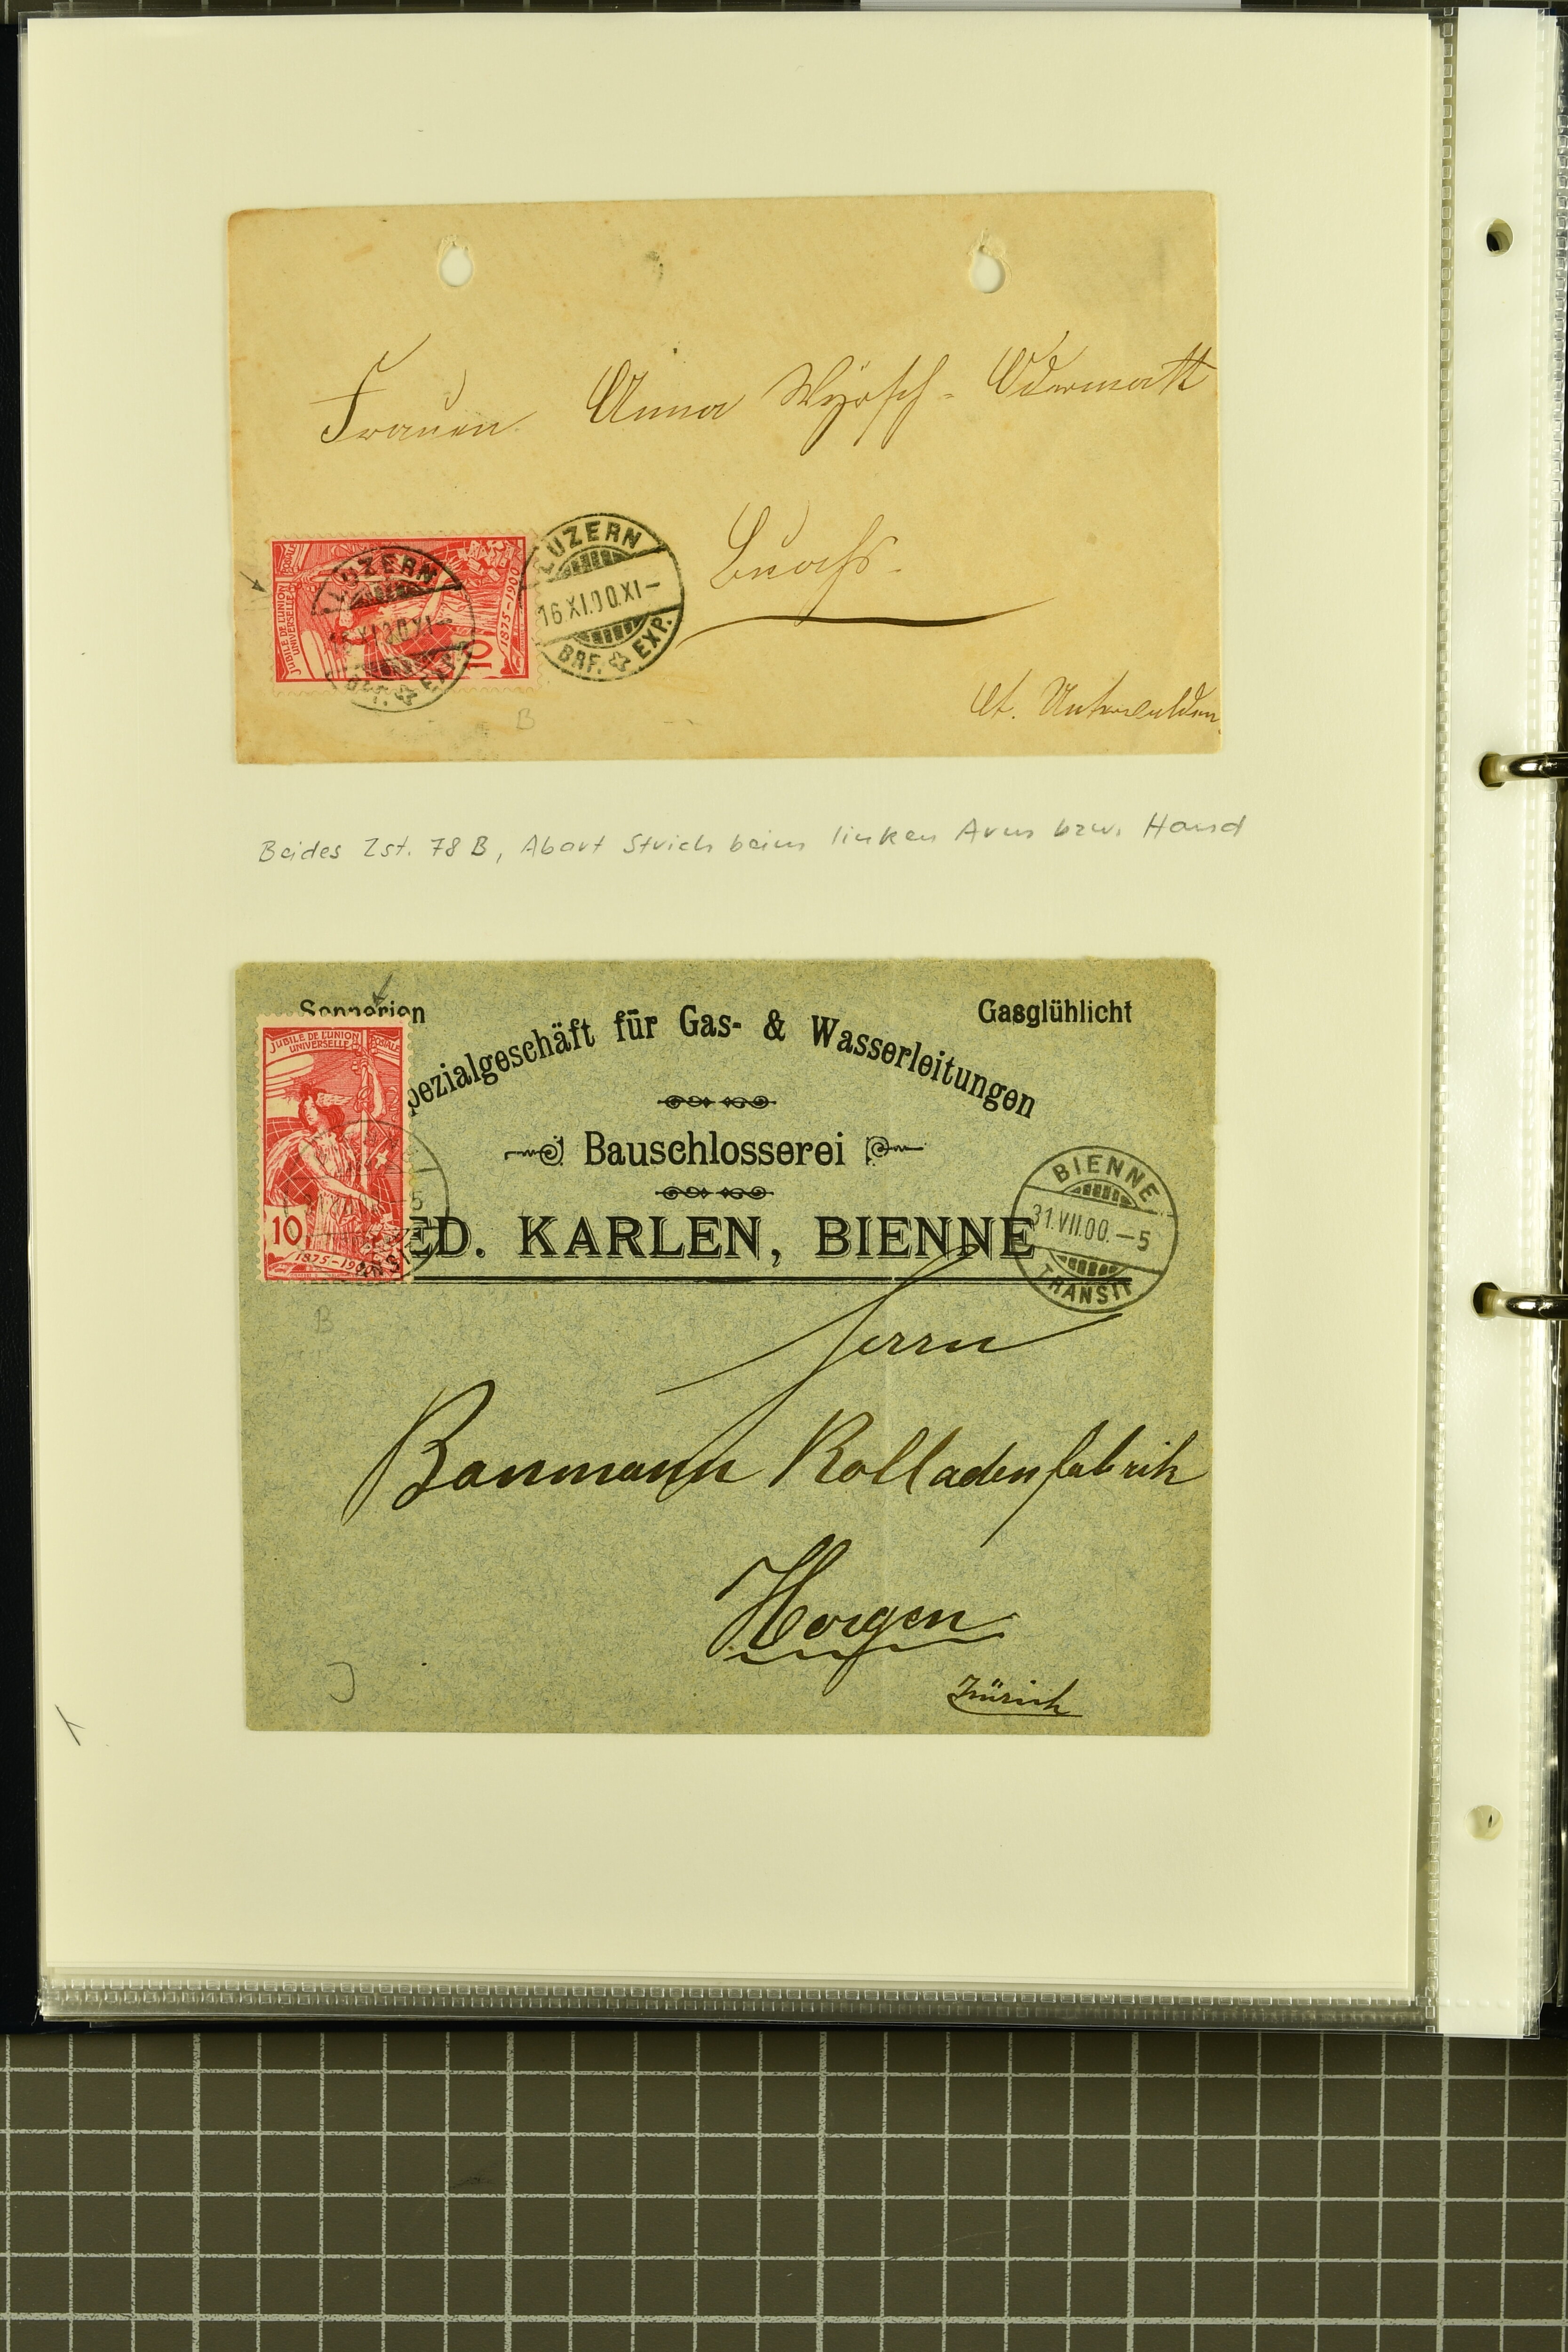 Frauen Anna Wyrsch - Odermatt
Buochs.
Ct. Unterwalden
JUBILÉ DE L'UNION
UNIVERSELLE
10
1875-1900
LUZERN
BRF. EXP.
LUZERN
16.XI.00.XI-
BRF. EXP.
B
Beides Zst. 78 B, Abart Strich beim linken Arm bzw. Hand
Sonnerien
Gasglühlicht
pezialgeschäft für Gas- & Wasserleitungen
Bauschlosserei
ED. KARLEN, BIENNE
JUBILÉ DE L'UNION
UNIVERSELLE POSTALE
10
1875-1900
BIENNE
31.VII.00.-5
TRANSIT
B
Herrn
Baumann Rolladenfabrik
Horgen
Zürich